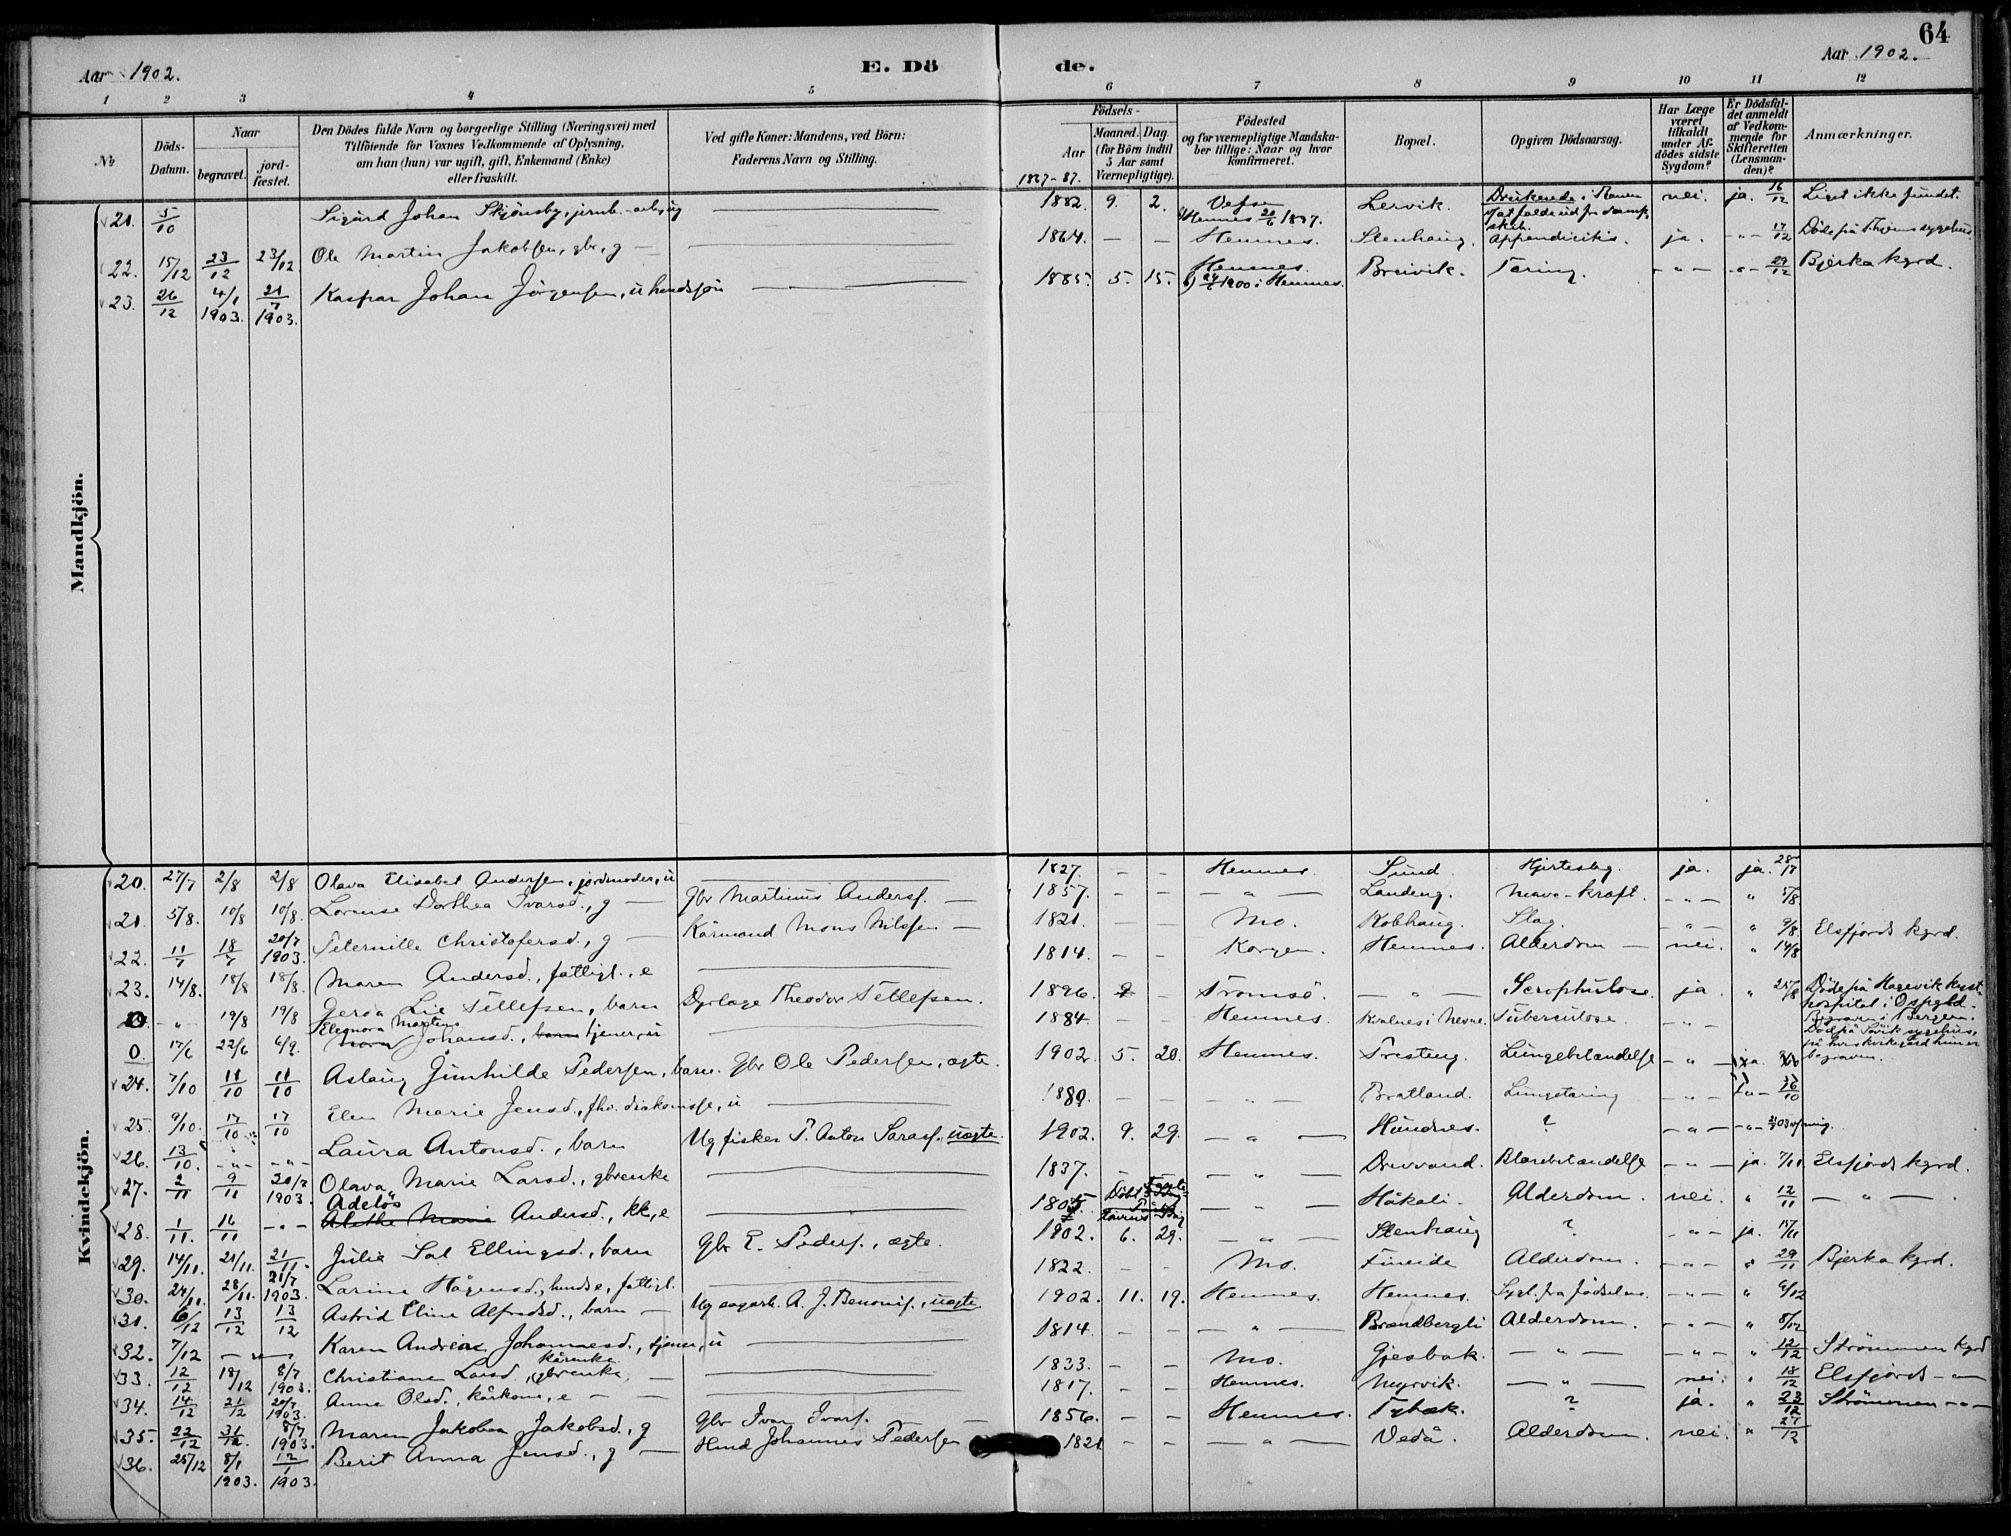 64
Aar 1902.
E. Dö
de.
Aar 1902.
1 2 3 4 5 6 7 8 9 10 11 12
No
Döds-Datum.
Naar
begravet.
jord-fæstet.
Den Dödes fulde Navn og borgerlige Stilling (Næringsvei) med
Tilföiende for Voxnes Vedkommende af Oplysning,
om han (hun) var ugift, gift, Enkemand (Enke)
eller fraskilt.
Ved gifte Koner: Mandens, ved Börn:
Faderens Navn og Stilling.
Födsels-
Aar
1827-87.
Maaned. Dag.
(for Börn indtil
5 Aar samt
Værnepligtige).
Födested
og for værnepligtige Mandska-
ber tillige: Naar og hvor
konfirmeret.
Bopæl.
Opgiven Dödsaarsag.
Har Læge
været
tilkaldt
under Af-
dödes sidste
Sygdom?
Er Dödsfal-
det anmeldt
af Vedkom-
mende for
Skifteretten
(Lensman-
den)?
Anmærkninger.
Mandkjön.
21. 5/10 Sigurd Johan Skjönsby, jernb.-arb, ug 1882. 9. 2. Vefsn Hemnes 20/6 1897. Lervik. Drukende i Ranen v/ at falde ud fra dampskib. nei. ja. 16/12 Liget ikke fundet.
22. 15/12 23/12 23/12 Ole Martin Jakobsen, gbr, g 1864. - - Hemnes. Stenhaug. Appendicitis. ja. -"- 17/12 Döde på Thjems sygehus
23. 26/12 4/1 1903. 21/7 1903. Kaspar Johan Jörgensen, u husdssön 1885. 5. 15. Hemnes. 24/6 1900 i Hemnes. Breivik. Tæring. -"- -"- 29/12 Bjerka kgrd.
Kvindekjön.
20. 27/7 2/8 2/8 Olava Elisabet Andersen, jordmoder, u 1827. - - Hemnes. Sund. Hjerteslag. ja. ja. 28/7
21. 5/8. 10/8 10/8. Lorense Dorthea Ivarsd., g Gbr Martinus Andersf. 1857. - - -"- Landeng. Mave-kræft. -"- " 5/8
22. 11/7 18/7 20/7 1903. Peternille Christofersd., g Kårmand Mons Nilssen 1821. - - Mo. Kobhaug. Slag. -"- " 9/8. Elsfjords kgrd.
23. 14/8. 18/8 18/8. Maren Andersd., fattigl., e 1814. - - Korgen. Hemnes. Alderdom nei. " 14/8
0. -"- 19/8 19/8 Gerda Lie Tellefsen, barn Dyrlæge Theodor Tellefsen. 1896. - Tromsö. -"- Scrophulose. ja. " 25/8 Döde på Hagevik kyst-hospital i Os pgld. Begraven i Bergen.
0. 17/6 22/6 6/9. Eleonora Martens Johansd., tjener, u 1884. Hemnes. Kvalnes i Nesne. Tuberculose. -"- Död på Sövik sygehus,
24. 7/10 11/10 11/10 Aslaug Gunhilde Pedersen, barn. Gbr Ole Pedersen, ægte. 1902. 5. 20. Hemnes. Presteng. Lungebetændelse -"- ja.
25. 9/10. 17/10 17/10 Elen Marie Jensd., fhv. diakonisse, u 1880. - - -"- Bratland. Lungetæring -"- -"- 16/10
26. 13/10. -"- -"- Laura Antonsd., barn Ug fisker P. Anton Sarasf., uægte. 1902. 9. 29. -"- Hundnes. ? -"- -"-
27. 2/11 9/11 20/7 1903. Olava Marie Larsd., gbrenke 1837. - -"- Drevvand. Blærebetændelse -"- ja. 7/11 Elsfjords kgrd.
28. 1/11. 16/11 -"- Adelös Alethe Marie Andersd., kk, e 1805. -"- Håkali. Alderdom. nei. " 12/11 -"-
29. 14/11. 21/11. 21/11. Julie Sal Ellingsd., barn Gbr E. Pedersf., ægte. 1902. 6. 29. -"- Stenhaug ? -"- ja. 15/11
30. 24/11. 28/11. 21/7 1903. Larine Hågensd., husdse, fattigl. 1822. - - Mo. Fineide Alderdom. -"- " 29/11 Bjerka kgrd.
31. 6/12 13/12 13/12 Astrid Eline Alfredsd., barn Ug sagarb. A. J. Benonif., uægte. 1902. 11. 19. Hemnes. Hemnes. Sygl. fra födselen. -"- " 6/12
32. 7/12 -"- Karen Andrea Johannesd., tjener, u 1814. - - -"- Brandbergli Alderdom. -"- " 8/12
33. 12/12 18/12 8/7 1903. Christiane Larsd, gbrenke, kårenke 1833. - - Mo. Gjesbak. -"- -"- " 12/12 Strömmen kgrd
34. 14/12 21/12 20/7 1903. Anne Olsd., kårkone, e 1817. - - Hemnes. Myrvik. -"- nei. " 18/12 Elsfjords -"-
35. 22/12 31/12. 8/7 1903. Maren Jakobea Jakobsd., g Gbr Ivar Ivarsf. 1856. - - Hemnes. Tybæk. ? ja. " 23/12 Strömmen -"-
36. 25/12 8/1 1903. 12/1 1903. Berit Anna Jensd., g Husd Johannes Pedersen 1821 - - -"- Vedå. Alderdom. nei. " 27/12